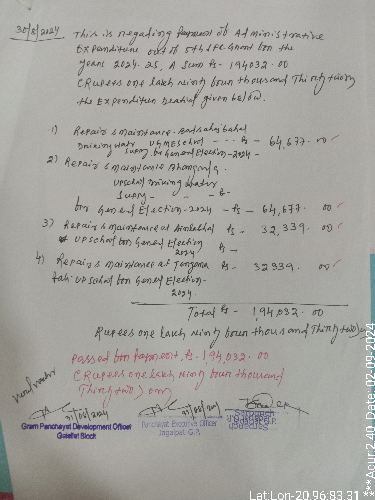 30/8/2024
This is regarding payment of Administrative
Expenditure out of 5th SFC Grant for the
years 2024-25, A Sum Rs- 194032.00
(Rupees one lakh Ninty four thousand Thirty two)
the Expenditure Deatial given below.
1) Repair & maintance
Drinking Water UGME School - - - Rs - 64,677.00
Supply for General Election-2024-
2) Repair & maintance
Upschool Drinking Water
Supply - - -
for General Election-2024 - Rs - 64,677. 00
3) Repair & maintance at Rs - 32,339. 00
UP School for General Election
2024 Rs -
4) Repairs & maintance at Jangama Rs- 32339. 00
UP School for General Election-
2024
Total Rs - 1,94,032.00
Rupees one lakh Ninty four thousand Thirty two)
Passed for Payment, Rs - 194,032.00
(Rupees one lakh Ninty four thousand
Thirty two) only
31/08/2024
31/08/2024
Gram Panchayat Development Officer
Gaisilet Block
Panchayat Executive Officer
Jagalpat, G.P.
Sarpanch
Lat:Lon-20.96:83.31
***Acur:2.40 Date: 02-09-2024